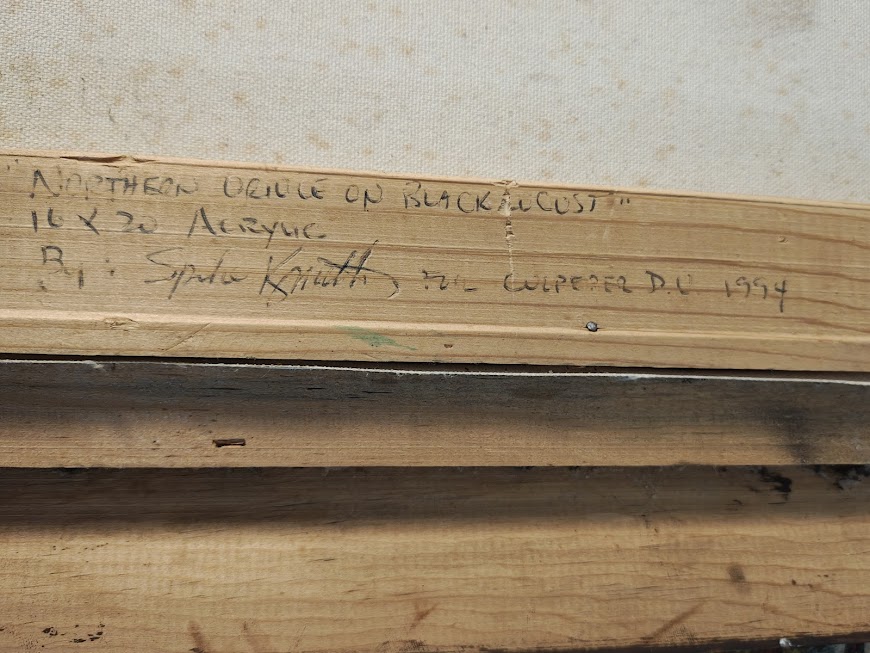 "NORTHERN ORIOLE ON BLACK LOCUST"
16 X 20 ACRYLIC
By: Spike Knuth FOR CULPEPER D.U. 1994